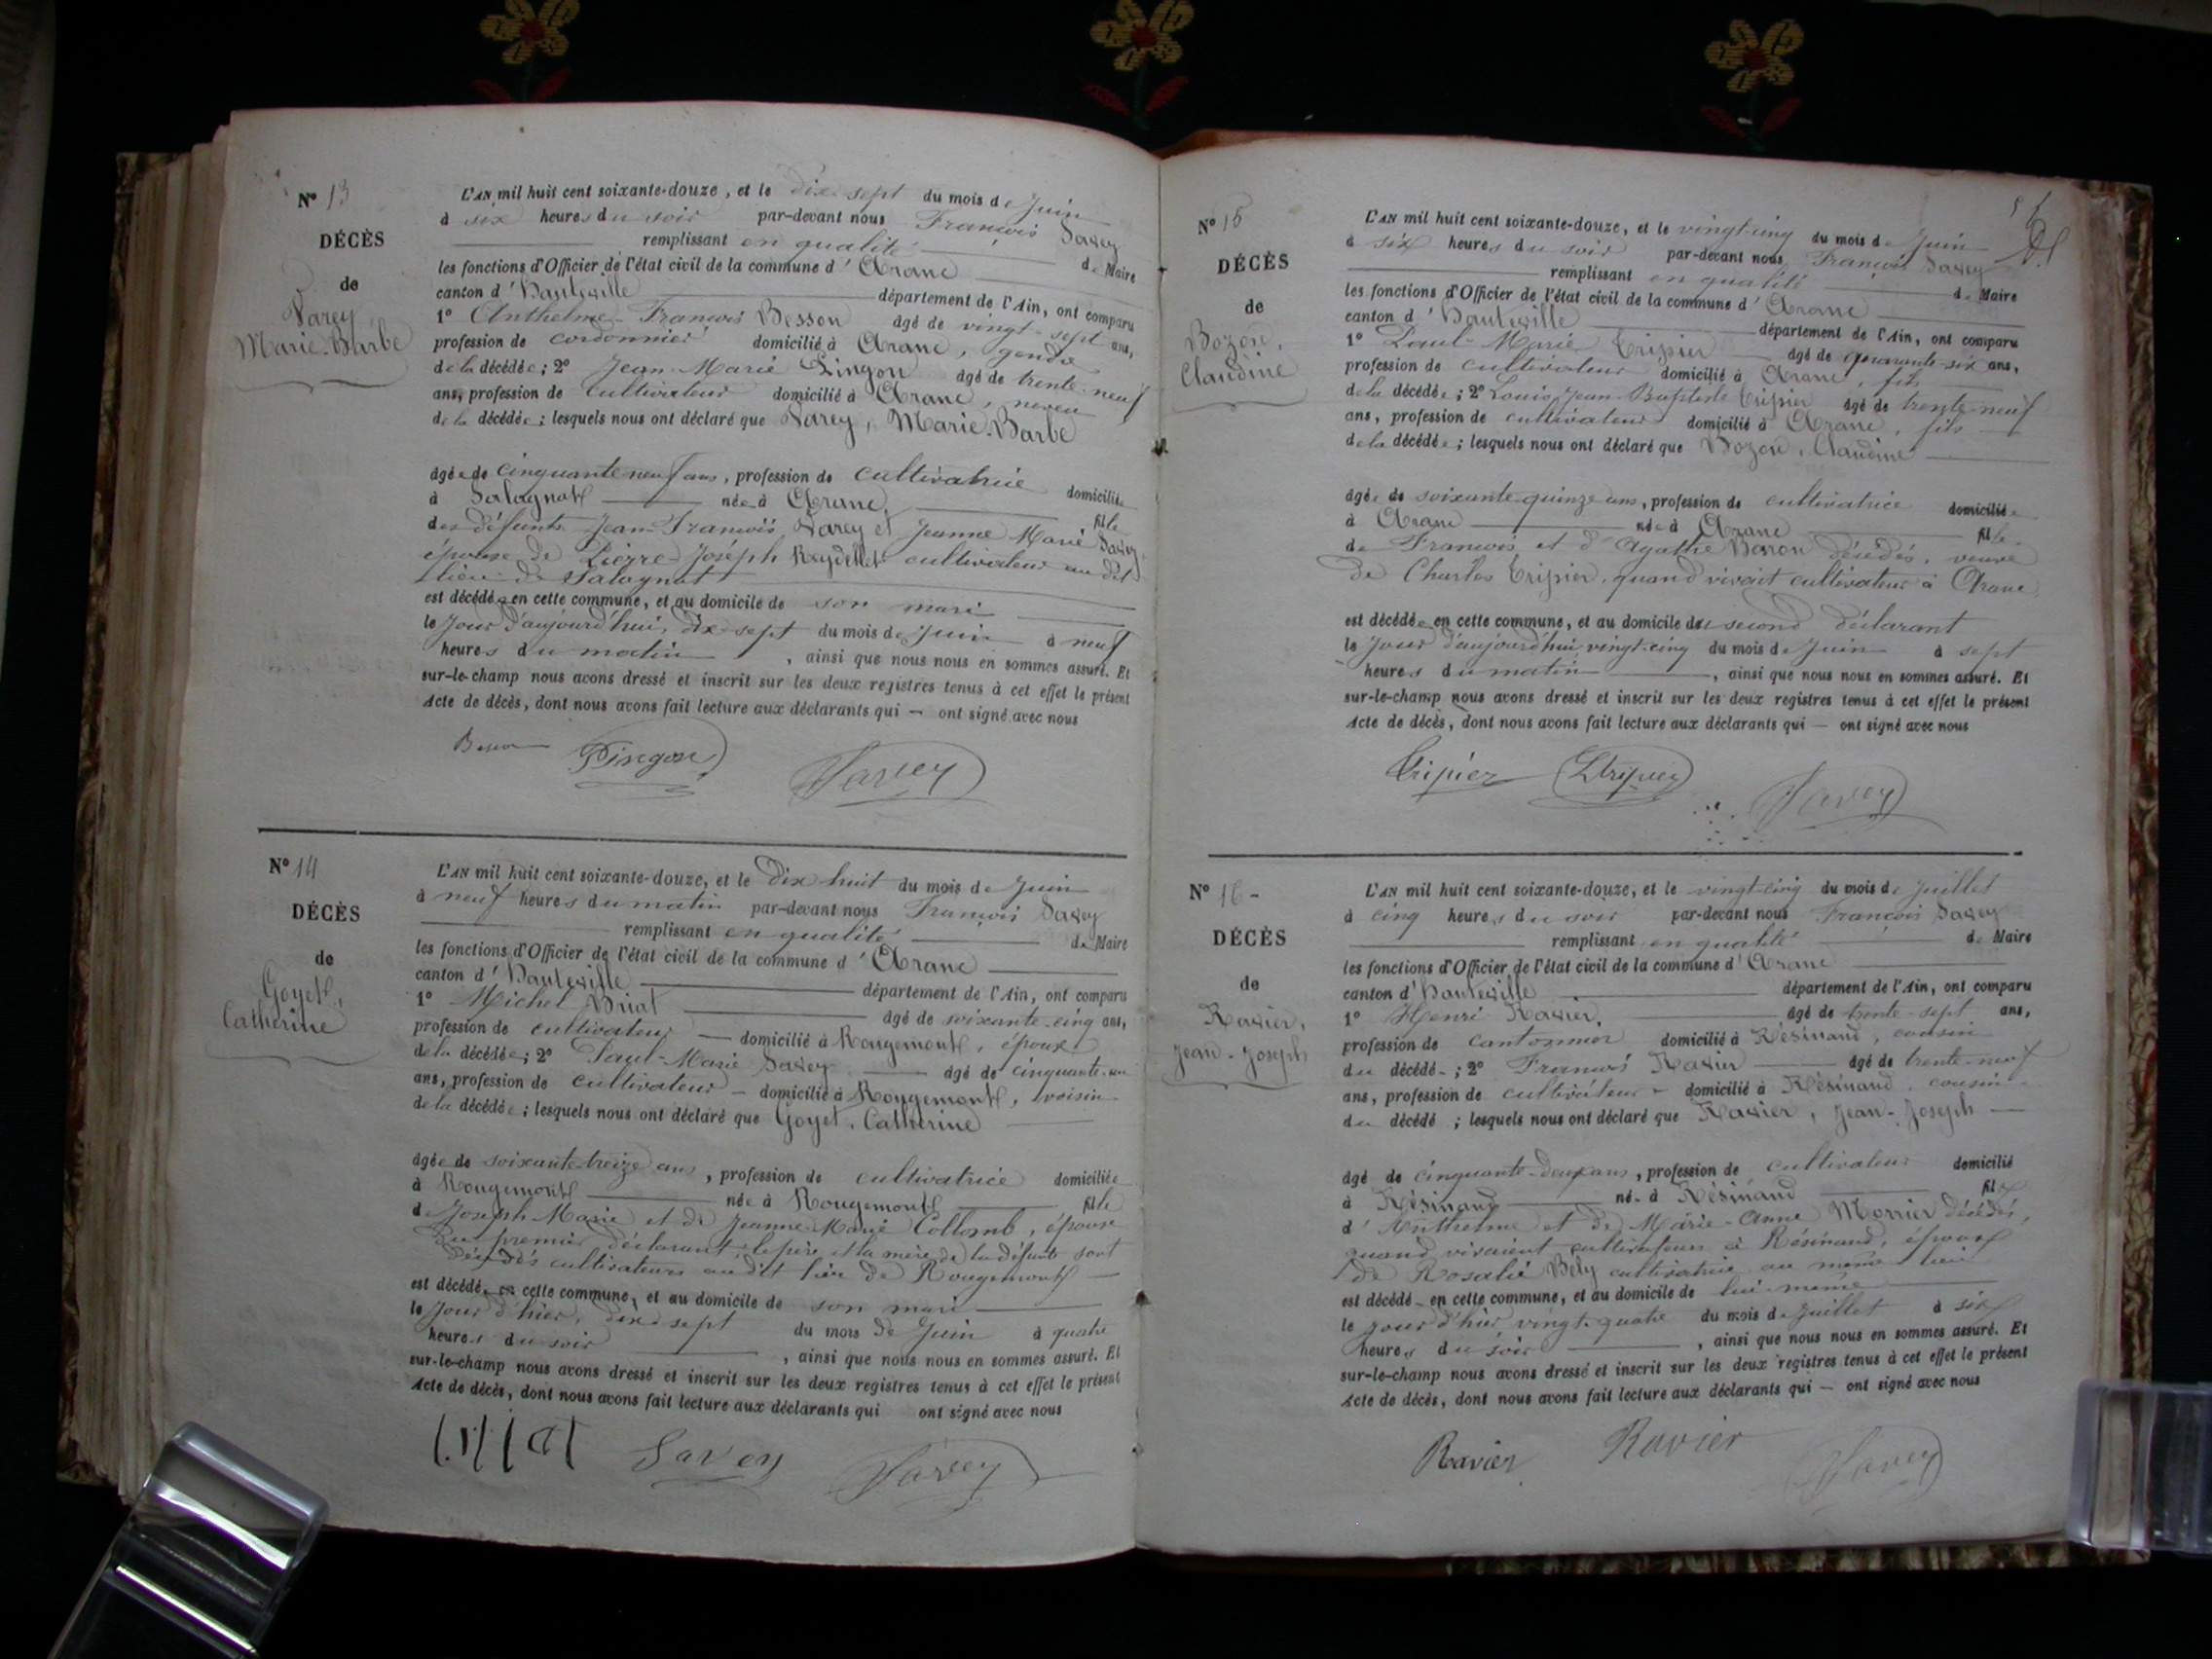 N° 13
DÉCÈS
de
Varey,
Marie-Barbe
L'AN mil huit cent soixante-douze, et le dix sept du mois de Juin
à six heures du soir par-devant nous François Savey
remplissant en qualité de Maire
les fonctions d'Officier de l'état civil de la commune d'Aranc
canton d'Hauteville département de l'Ain, ont comparu
1° Anthelme-François Besson âgé de vingt-sept ans,
profession de cordonnier domicilié à Aranc, gendre
de la décédée; 2° Jean-Marie Pingon âgé de trente-neuf
ans, profession de cultivateur domicilié à Aranc, neveu
de la décédée; lesquels nous ont déclaré que Varey, Marie-Barbe
âgée de cinquante neuf ans, profession de cultivatrice domiciliée
à Salagnat née à Aranc, fille
des défunts Jean-François Varey et Jeanne Marie Savey,
épouse de Pierre Joseph Reydellet cultivateur au dit
lieu de Salagnat
est décédée en cette commune, et au domicile de son mari
le jour d'aujourd'hui, dix-sept du mois de Juin à neuf
heures du matin, ainsi que nous nous en sommes assuré. Et
sur-le-champ nous avons dressé et inscrit sur les deux registres tenus à cet effet le présent
Acte de décès, dont nous avons fait lecture aux déclarants qui — ont signé avec nous
Besson Pingon Savey
N° 14
DÉCÈS
de
Goyet,
Catherine
L'AN mil huit cent soixante-douze, et le dix huit du mois de Juin
à neuf heures du matin par-devant nous François Savey
remplissant en qualité de Maire
les fonctions d'Officier de l'état civil de la commune d'Aranc
canton d'Hauteville département de l'Ain, ont comparu
1° Michel Briat âgé de soixante-cinq ans,
profession de cultivateur domicilié à Rougemont, époux
de la décédée; 2° Paul-Marie Savey âgé de cinquante-un
ans, profession de cultivateur domicilié à Rougemont, voisin
de la décédée; lesquels nous ont déclaré que Goyet, Catherine
âgée de soixante-treize ans, profession de cultivatrice domiciliée
à Rougemont née à Rougemont fille
de Joseph-Marie et de Jeanne-Marie Collomb, épouse
du premier déclarant, le père et la mère de la défunte sont
décédés cultivateurs au dit lieu de Rougemont
est décédée en cette commune, et au domicile de son mari
le jour d'hier, dix sept du mois de Juin à quatre
heures du soir, ainsi que nous nous en sommes assuré. Et
sur-le-champ nous avons dressé et inscrit sur les deux registres tenus à cet effet le présent
Acte de décès, dont nous avons fait lecture aux déclarants qui ont signé avec nous
Savey Savey
N° 15
DÉCÈS
de
Bozon,
Claudine
L'AN mil huit cent soixante-douze, et le vingt-cinq du mois de Juin
à six heures du soir par-devant nous François Savey
remplissant en qualité de Maire
les fonctions d'Officier de l'état civil de la commune d'Aranc
canton d'Hauteville département de l'Ain, ont comparu
1° Paul-Marie Tripier âgé de quarante-six ans,
profession de cultivateur domicilié à Aranc, fils
de la décédée; 2° Louis Jean-Baptiste Tripier âgé de trente-neuf
ans, profession de cultivateur domicilié à Aranc, fils
de la décédée; lesquels nous ont déclaré que Bozon, Claudine
âgée de soixante-quinze ans, profession de cultivatrice domiciliée
à Aranc née à Aranc fille
de François et d'Agathe Baron décédés, veuve
de Charles Tripier, quand vivait cultivateur à Aranc,
est décédée en cette commune, et au domicile du second déclarant
le jour d'aujourd'hui, vingt-cinq du mois de Juin à sept
heures du matin, ainsi que nous nous en sommes assuré. Et
sur-le-champ nous avons dressé et inscrit sur les deux registres tenus à cet effet le présent
Acte de décès, dont nous avons fait lecture aux déclarants qui — ont signé avec nous
Tripier Tripier Savey
N° 16
DÉCÈS
de
Ravier,
Jean-Joseph
L'AN mil huit cent soixante-douze, et le vingt-cinq du mois de Juillet
à cinq heures du soir par-devant nous François Savey
remplissant en qualité de Maire
les fonctions d'Officier de l'état civil de la commune d'Aranc
canton d'Hauteville département de l'Ain, ont comparu
1° Henri Ravier, âgé de trente-sept ans,
profession de cantonnier domicilié à Résinand, cousin
du décédé; 2° François Ravier âgé de trente-neuf
ans, profession de cultivateur domicilié à Résinand, cousin
du décédé; lesquels nous ont déclaré que Ravier, Jean-Joseph
âgé de cinquante-deux ans, profession de cultivateur domicilié
à Résinand né à Résinand fils
d'Anthelme et de Marie-Anne Monier décédés,
quand vivaient cultivateurs à Résinand, époux
de Rosalie Bély cultivatrice au même lieu
est décédé en cette commune, et au domicile de lui-même
le jour d'hier, vingt-quatre du mois de Juillet à six
heures du soir, ainsi que nous nous en sommes assuré. Et
sur-le-champ nous avons dressé et inscrit sur les deux registres tenus à cet effet le présent
Acte de décès, dont nous avons fait lecture aux déclarants qui — ont signé avec nous
Ravier Ravier Savey